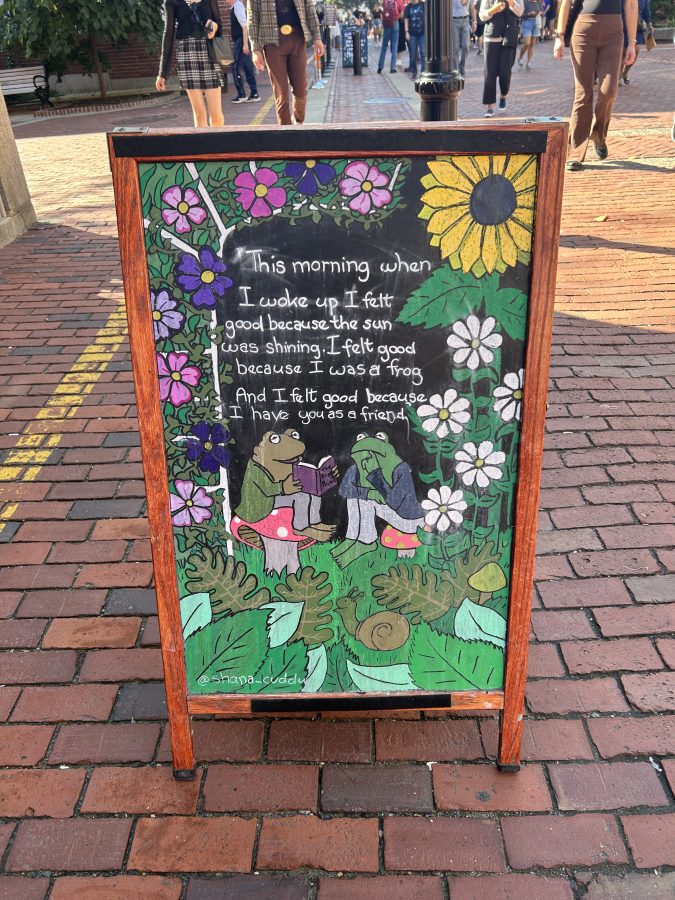 This morning when
I woke up I felt
good because the sun
was shining. I felt good
because I was a frog
And I felt good because
I have you as a friend
@shana_cuddy